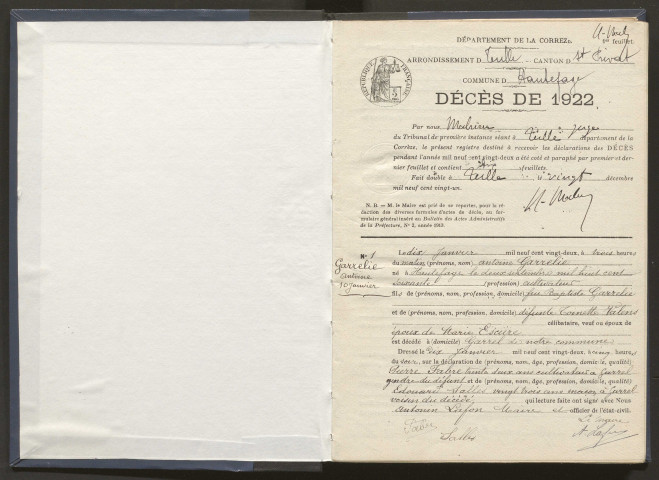 1er feuillet.
DÉPARTEMENT DE LA CORRÈZE.
ARRONDISSEMENT D Tulle CANTON D St Privat
COMMUNE D Hautefage
RÉPUBLIQUE FRANÇAISE
DÉCÈS DE 1922
Par nous juge
du Tribunal de première instance séant à Tulle département de la
Corrèze, le présent registre destiné à recevoir les déclarations des DÉCÈS
pendant l'année mil neuf cent vingt-deux a été coté et paraphé par premier et der-
nier feuillet et contient feuillets.
Fait double à Tulle vingt décembre
mil neuf cent vingt-un.
N. B. — M. le Maire est prié de se reporter, pour la ré-
daction des diverses formules d'actes de décès, au for-
mulaire général inséré au Bulletin des Actes Administratifs
de la Préfecture, N° 2, année 1913.
N° 1
Garrelie
antoine
10 janvier
Le dix janvier mil neuf cent vingt-deux, à trois heures
du matin (prénoms, nom) antoine Garrelie
né à Hautefage le deux septembre mil huit cent
soixante (profession) cultivateur
fils de (prénoms, nom, profession, domicile) feu Baptiste Garrelie
et de (prénoms, nom, profession, domicile) défunte Toinette
célibataire, veuf ou époux de
époux de Marie Escure
est décédé à (domicile) Garrel de notre commune
Dressé le dix janvier mil neuf cent vingt-deux, heures
du soir, sur la déclaration de (prénoms, nom, âge, profession, domicile, qualité)
Pierre Fabre trente deux ans cultivateur à Garrel
gendre du défunt et de (prénoms, nom, âge, profession, domicile, qualité)
Edouard Salles vingt trois ans maçon à Garrel
voisin du décédé, qui lecture faite ont signé avec Nous
Antonin Lafon Maire et officier de l'état-civil.
Fabre Le Maire
Salles A. Lafon